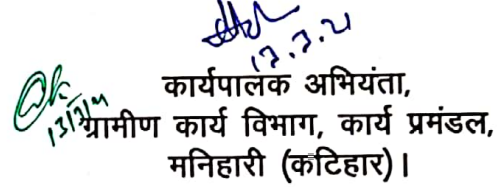 13.7.21
13/7/21
कार्यपालक अभियंता,
ग्रामीण कार्य विभाग, कार्य प्रमंडल,
मनिहारी (कटिहार)।